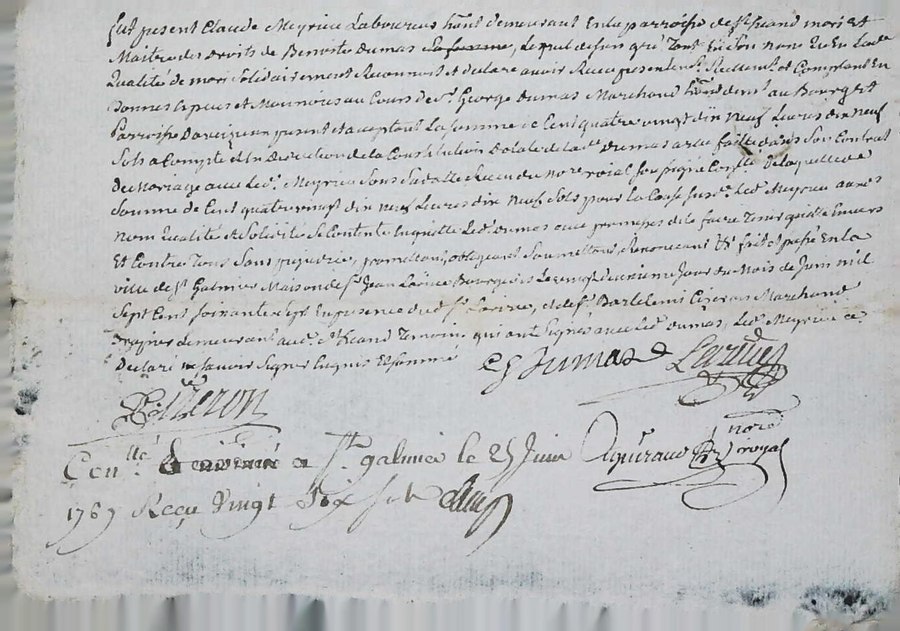 fut present Claude Meyrieu Laboureur hant demeurant En la parroisse de st heand mari Et
Maitre des Droits de Benoite Dumas sa femme, lequel de son gré tant En son nom qu'En lad.
Qualité de mari solidairement Reconnoit et declare avoir Receu presentemt Reelemt et Comptant En
Donnes especes et Monnoies au Cours de sr George Dumas Marchand hant demt au Bourg et
Parroisse D'aveizieux present et acceptant La somme de Cent quatre vingt dix neuf Livres dix neuf
sols a Compte et En Deduction de la Constitution Dotale de lad. Dumas a elle faitte dans son Contrat
de Mariage avec led. Meyrieu sous sa datte Receu du nore roial soussigné Contlé De laquelle de
somme de Cent quatre vingt dix neuf Livres dix neuf sols pour la Cause susd. led. Meyrieu aux
nom Qualité et solidité se Contente En quitte Led. Dumas avec promesses de la faire tenir quitte Envers
Et Contre Tous sans figurerie, promettant, obligeant soumettant, Renoncant &a fait et passé En la
ville de st Galmier Maison de sr Jean Larive Bourgeois Le vingt deuxieme Jour du Mois de Juin mil
sept Cent soixante sept En presence dud. sr Larive, et de sr Bartelemi Cizeron Marchand
demeurant aud. st heand Temoins qui ont signés avec Led. Dumas, Led. Meyrieu a
Declaré ne savoir signer Enquis Et sommé
Dumas Larive
Cizeron
Conllé a st galmier le 25 Juin
nore
royal
1767 Reçu Vingt Six sols